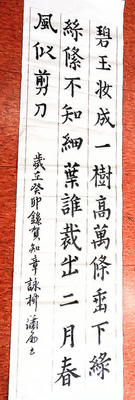 碧玉妝成一樹高萬條垂下綠
絲絛不知細葉誰裁出二月春
風似剪刀
歲在癸卯錄賀知章詠柳